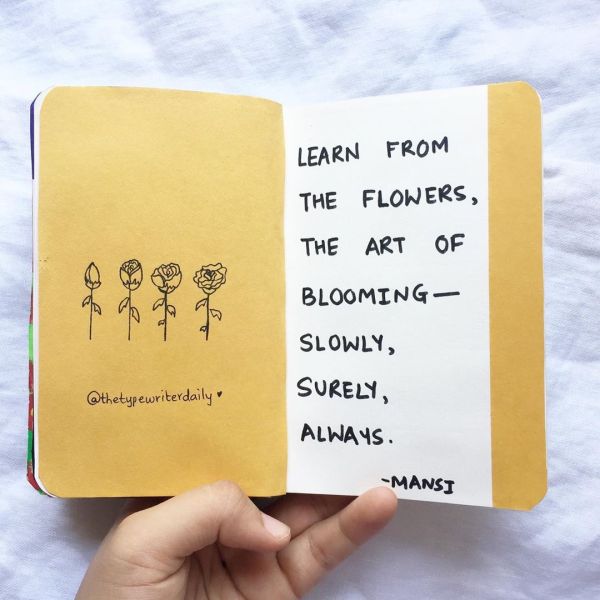 @thetypewriterdaily ♥
LEARN FROM
THE FLOWERS,
THE ART OF
BLOOMING—
SLOWLY,
SURELY,
ALWAYS.
-MANSI